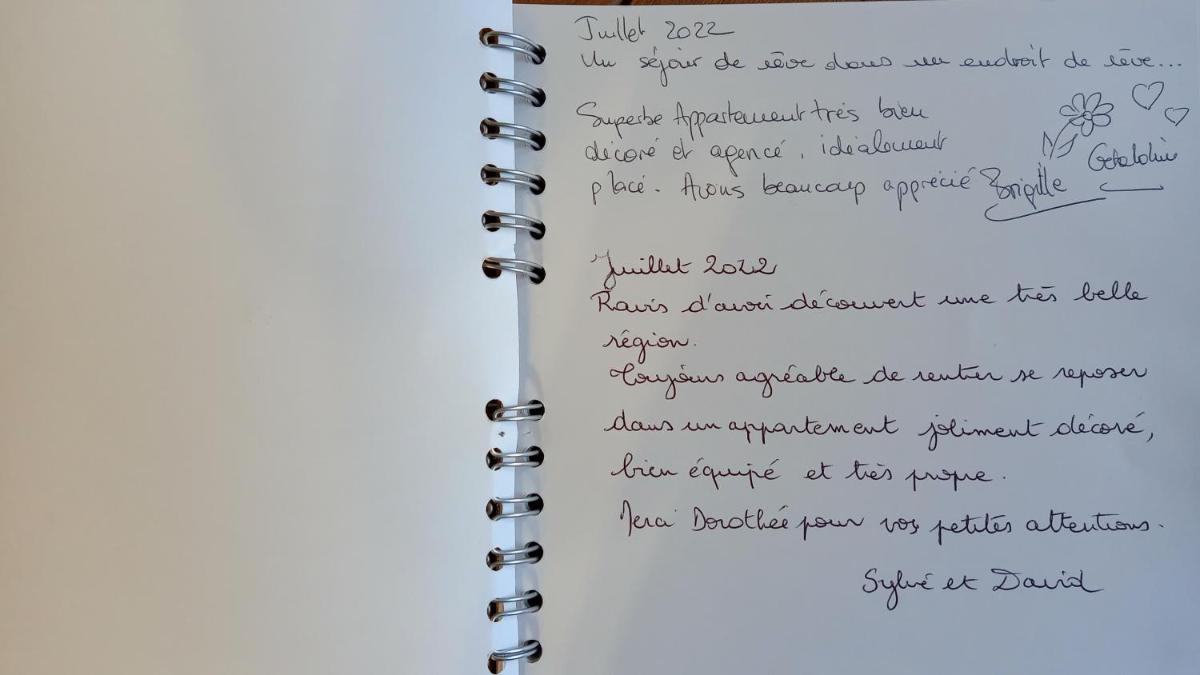 Juillet 2022
Un séjour de rêve dans un endroit de rêve...
Superbe Appartement très bien
décoré et agencé, idéalement
placé. Avons beaucoup apprécié Brigitte
Juillet 2022
Ravis d'avoir découvert une très belle
région.
Toujours agréable de rentrer se reposer
dans un appartement joliment décoré,
bien équipé et très propre.
Merci Dorothée pour vos petites attentions.
Sylvie et David